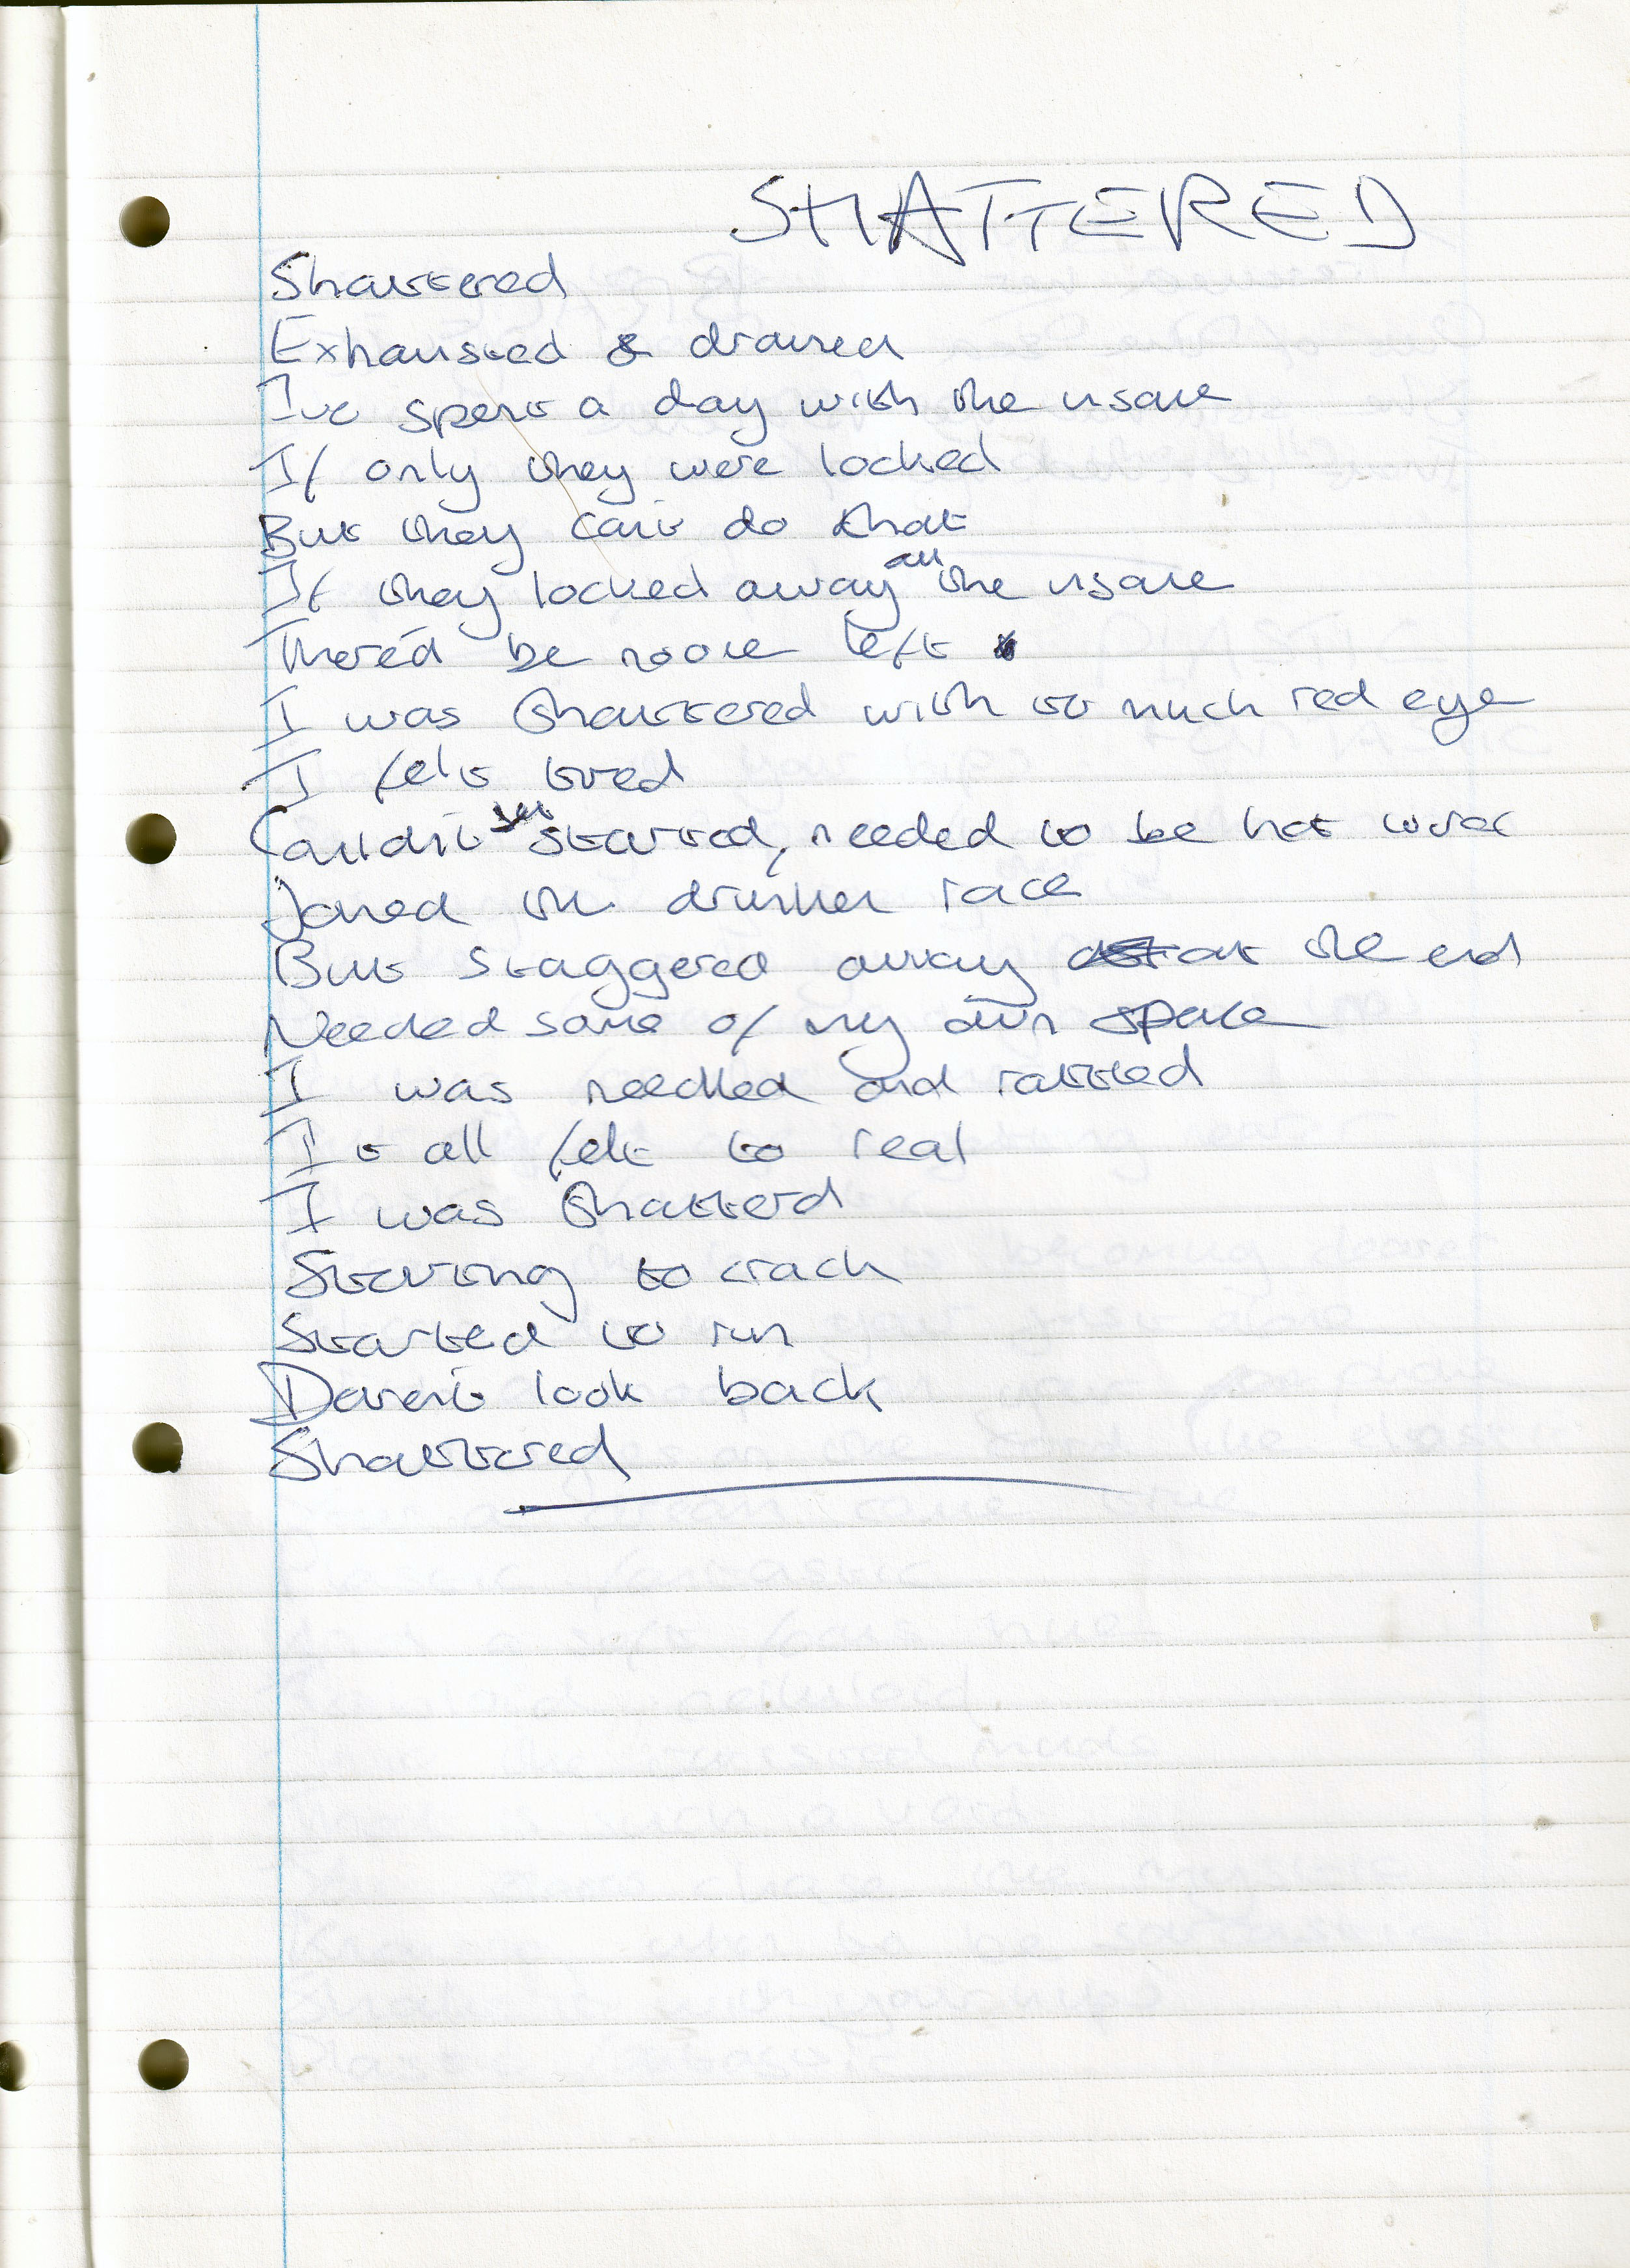 SHATTERED
Shattered
Exhausted & drained
Ive spent a day with the insane
If only they were locked
But they cant do that
If they locked away all the insane
There'd be noone left
I was shattered with to much red eye
I felt tired
Couldnt started, needed to be hot
Joined the drunken race
But staggered away at the end
Needed some of my own space
I was needled and rattled
It all felt to real
I was shatterd
Starting to crack
Started to run
Darent look back
Shattered